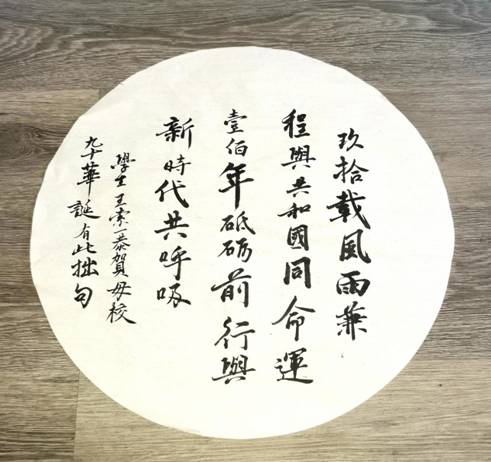 玖拾載風雨兼
程與共和國同命運
壹佰年砥礪前行與
新時代共呼吸
學生王索恭賀母校
九十華誕有此拙句